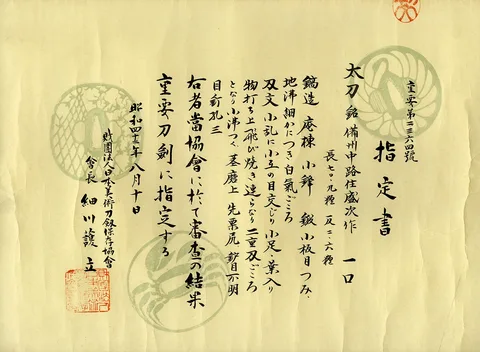 重要第二三六四號
指定書
太刀 銘 備州中路住盛次作 一口
長七〇・九糎 反二・六糎
鎬造 庵棟 小鋒 鍛 小板目つみ、
地沸細かにつき白氣ごころ
刄文 小乱に小互の目交じり 小足・葉入り
物打ち上飛び焼き連らなり二重刄ごころ
となり小沸つく 茎磨上 先栗尻 鑢目不明
目釘孔三
右者當協會に於て審査の結果
重要刀劍に指定する
昭和四十 年八月十日
財團法人日本美術刀劍保存協會
會長 細川護立